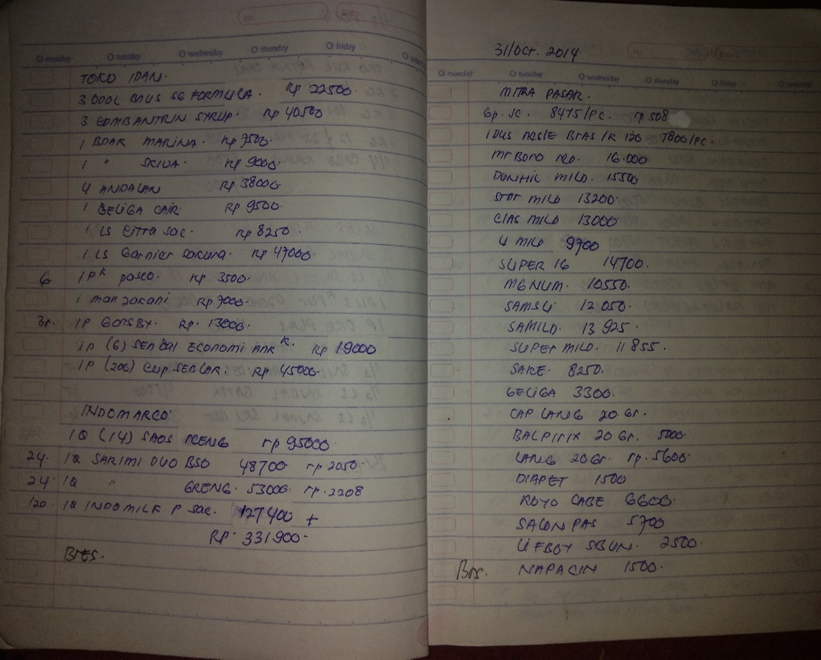 monday tuesday wednesday thursday friday
TOKO IDAN.
3 DOOL BMUS 66 FORMULA. Rp 22500.
3 COMBANTRIN SYRUP. Rp 40500
1 BOAK MARINA. Rp 9500.
1 " SKIVA. Rp 9000.
4 ANDALAN Rp 38000.
1 GELIGA CAIR. Rp 9500
1 LS Citra Sac. Rp 8250
1 LS Garnier Sakura. Rp 47000.
6 1 PK paseo. Rp 3500.
1 manzakani Rp 7000.
3r. 1P GATSBY. Rp. 13000.
1P (6) SENDAL ECONOMI ANK K. Rp 19000
1P (200) CUP SEGLAR. Rp 45000.
INDOMARCO.
1Q (14) SAOS PCENG rp 95000.
24. 1Q SARIMI DUO BSO 48700 rp 2050.
24. 1Q " GRENG. 53000 rp. 2208
120. 1Q INDOMILK P SAC. 127400 +
Rp. 331900.
Bres.
31/Oct. 2014.
monday tuesday wednesday thursday friday
MITRA PASAR.
Gp. Sc. 8475/PC. rp 508
1 DUS 120 7800/PC.
Mr Boro RED. 16.000
DUNHIL MILD. 15500
STAR MILD 13200.
CLAS MILD 13000
U MILD 9700
SUPER 16 14700.
MGNUM. 10550.
SAMSU. 12.050.
SAMILD. 13 925.
SUPER MILD. 11 855.
SAKE. 8250.
GELIGA 3300.
CAP LANG 20 Gr.
BALPIRIX 20 Gr. 5000.
LANG 20 Gr. rp. 5600.
DIAPET 1500
ROYO CABE 6600.
SALONPAS 5700
LIFBOY SBUN. 2500.
Brs. NAPACIN 1500.